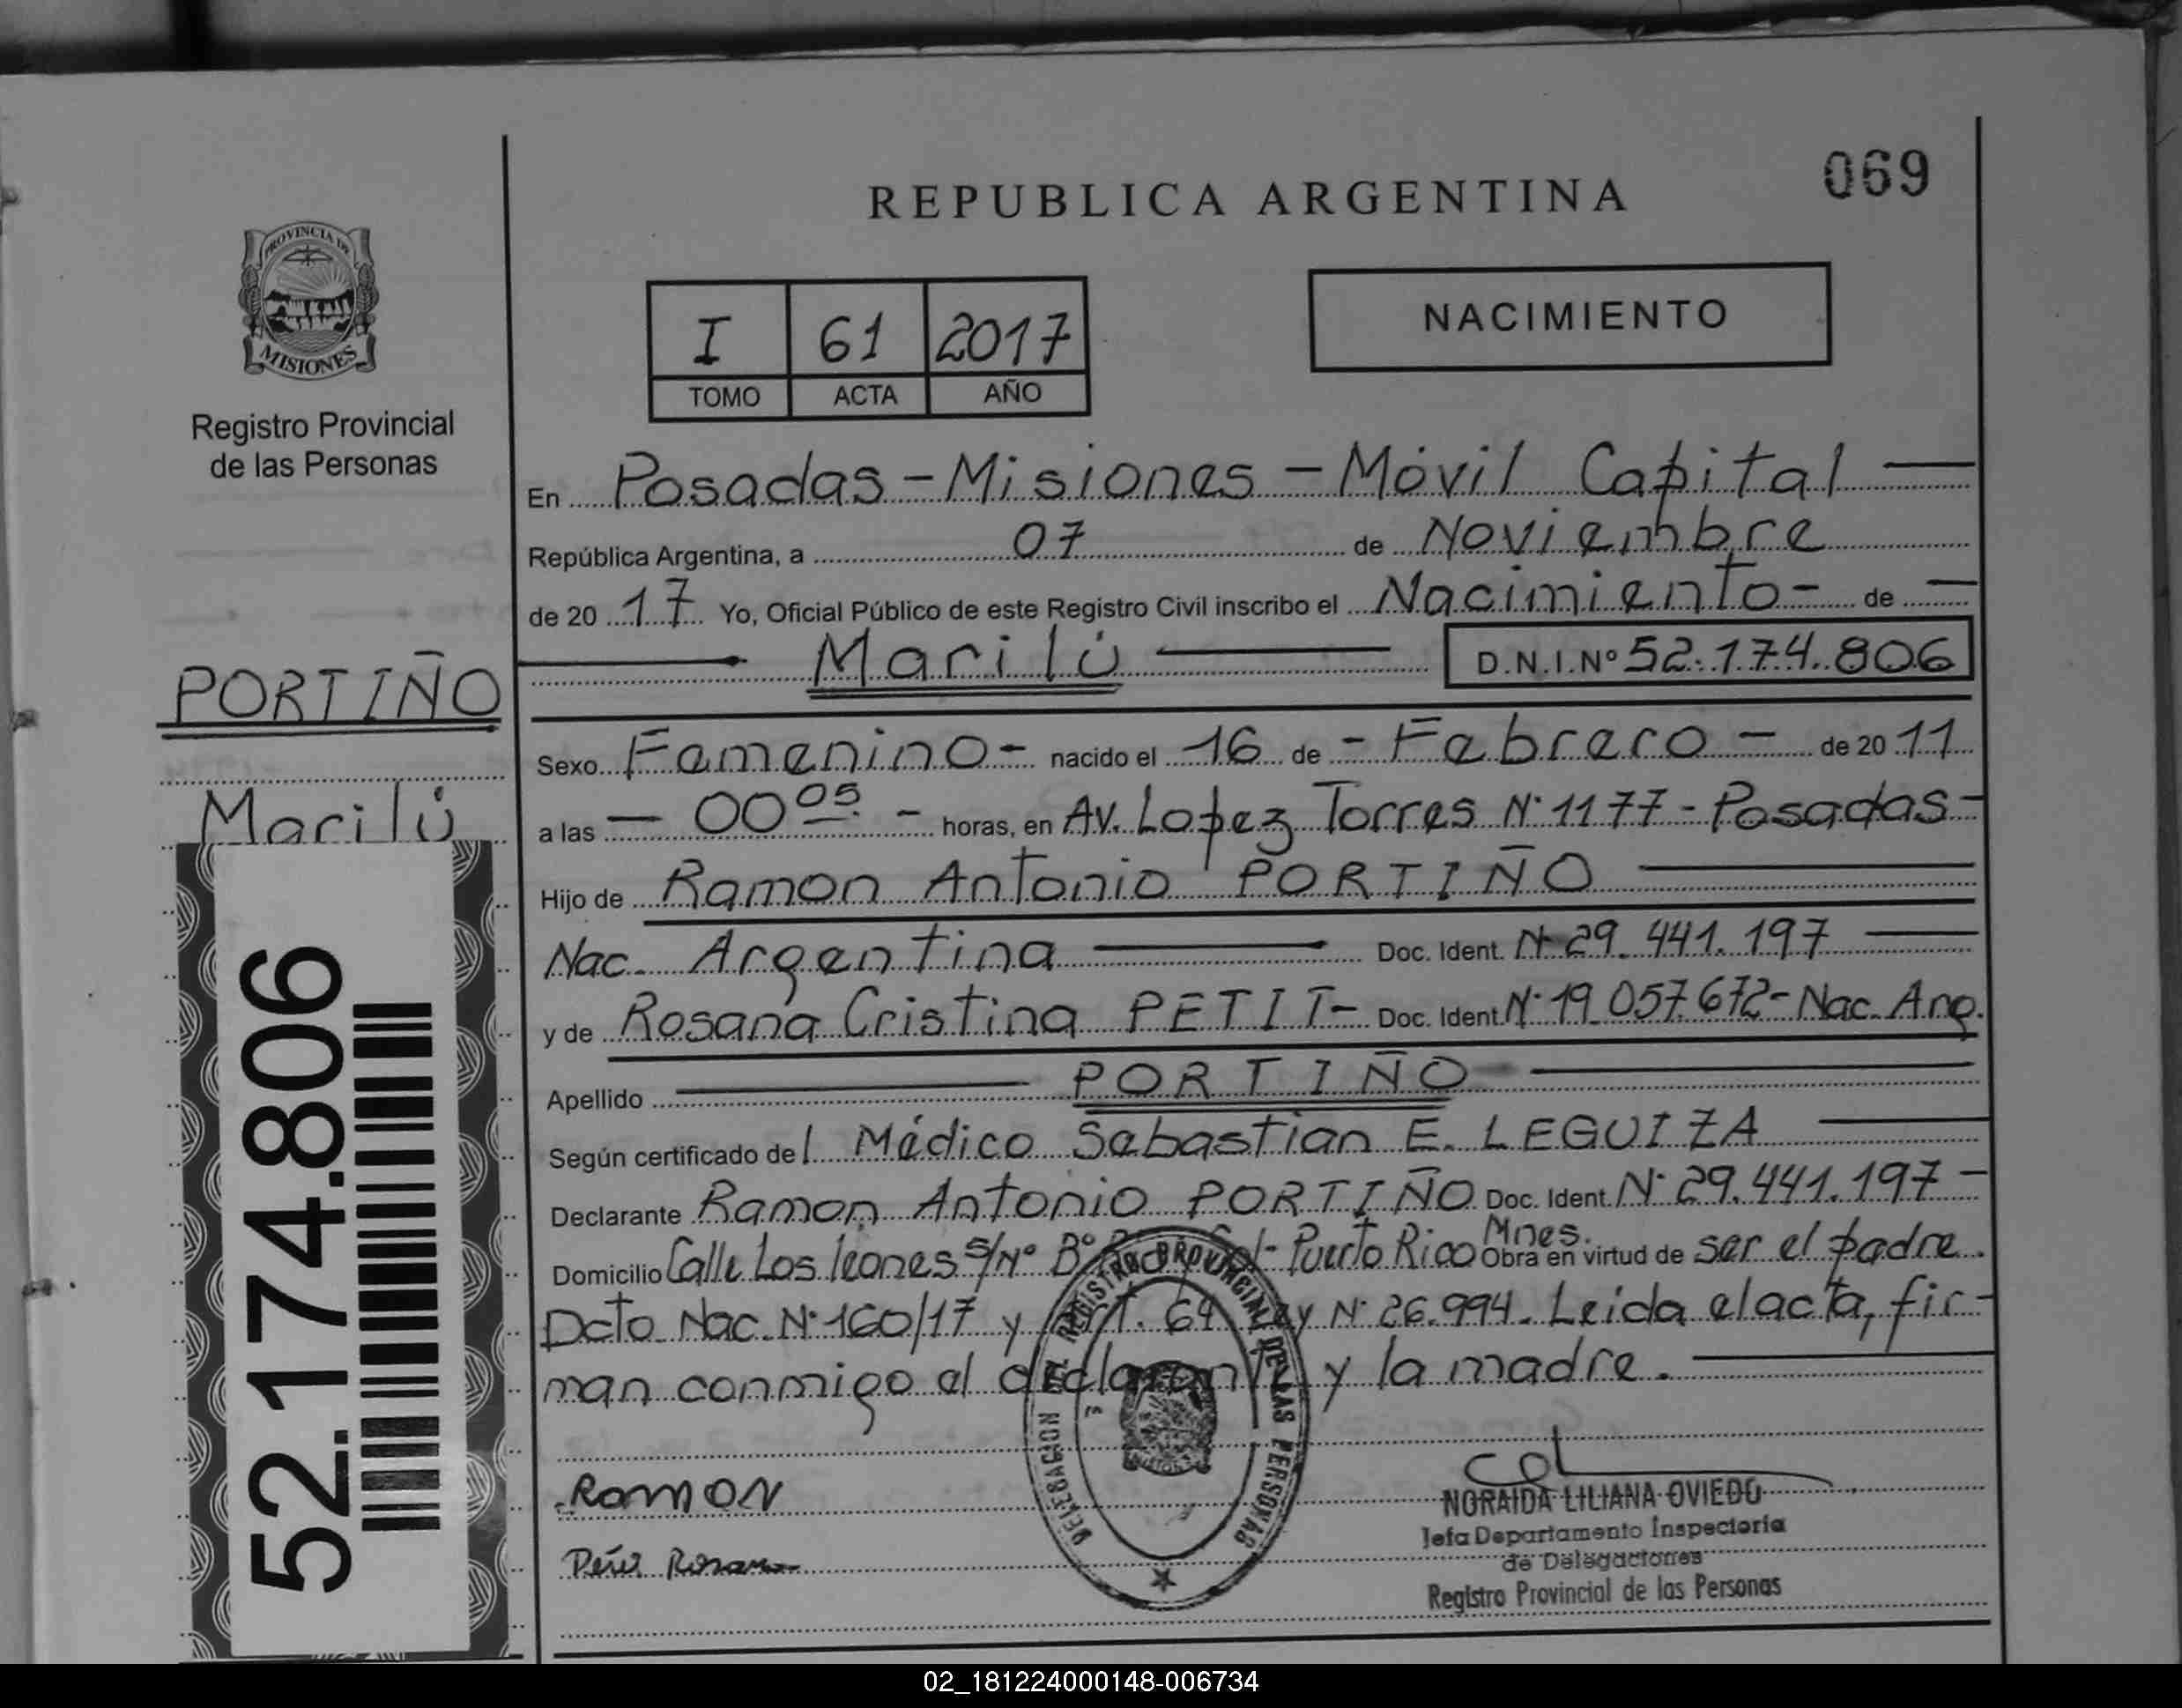 069
REPUBLICA ARGENTINA
PROVINCIA DE
MISIONES
Registro Provincial
de las Personas
I 61 2017
TOMO ACTA AÑO
NACIMIENTO
En Posadas - Misiones - Móvil Capital
República Argentina, a 07 de Noviembre
de 2017 Yo, Oficial Público de este Registro Civil inscribo el Nacimiento - de
Marilú D.N.I.Nº 52.174.806
PORTIÑO
Marilú
52.174.806
Sexo Femenino - nacido el 16 de - Febrero - de 2011
a las - 00 05 - horas, en Av. Lopez Torres N° 1177 - Posadas -
Hijo de Ramon Antonio PORTIÑO
Nac. Argentina Doc. Ident. N° 29.441.197
y de Rosana Cristina PETIT - Doc. Ident. N° 19.057.672 - Nac. Arg.
Apellido PORTIÑO
Según certificado del Médico Sebastian E. LEGUIZA
Declarante Ramon Antonio PORTIÑO Doc. Ident. N° 29.441.197 -
Domicilio Calle Los leones s/Nº Bº - Puerto Rico Mnes. Obra en virtud de ser el padre.
Dcto Nac. N° 160/17 y Art. 64 Ley N° 26.994. Leida el acta, fir-
man conmigo el declarante y la madre.
DELEGACION DEL REGISTRO PROVINCIAL DE LAS PERSONAS
Ramon
Rosana
NORAIDA LILIANA OVIEDO
Jefa Departamento Inspectoria
de Delegaciones
Registro Provincial de las Personas
02_181224000148-006734